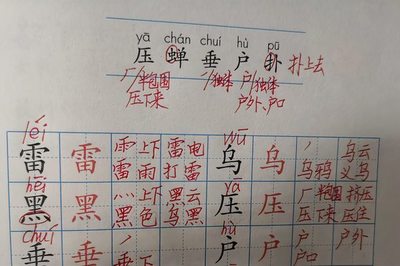 yā chán chuí hù pū
压 蝉 垂 户 扑 扑上去
厂/半包围 丿/独体 户/独体
压下来 户外、户口
léi wū
雷 雷 雨 上下 雷电 乌 乌 丿 乌鸦 乌云
雨 打雷 乌 义乌
hēi yā
黑 黑 丷 上下 黑云 压 压 厂 半包围 挤压
黑 黑色 乌黑 压 压下来 压住
chuí hù
垂 垂 丿 上下 户 户 户外